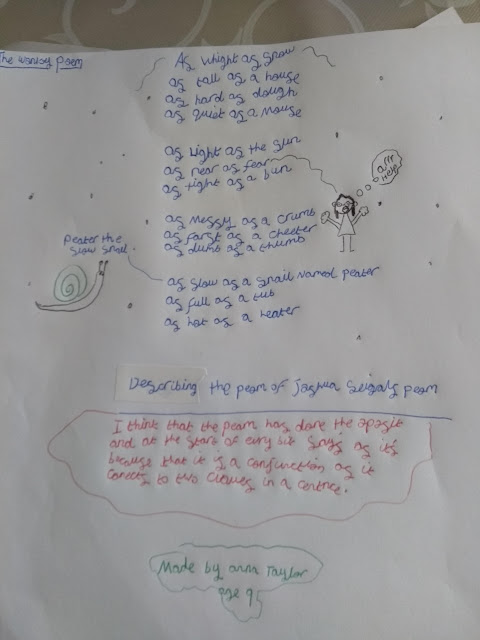 The wonky poem
As whight as snow
as tall as a house
as hard as dough
as quiet as a mouse
as light as the sun
as near as fear
as tight as a bun
arr
Help
as messy as a crumb
as farst as a cheeter
as dumb as a thumb
Peater the
slow snail.
as slow as a snail named peater
as full as a tub
as hot as a heater
Describing the poem of Joshua Seigals poem
I think that the poem has done the oposit
and at the start of evry bit says as it's
because that it is a conjunction as it
conects to two clawses in a centnce.
Made by anna Taylor
age 9